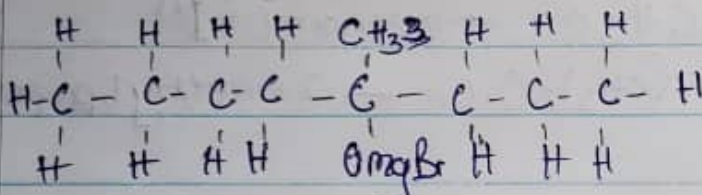 H H H H CH33 H H H
H-C - C- C- C - C - C - C- C- H
H H H H OmgBr H H H